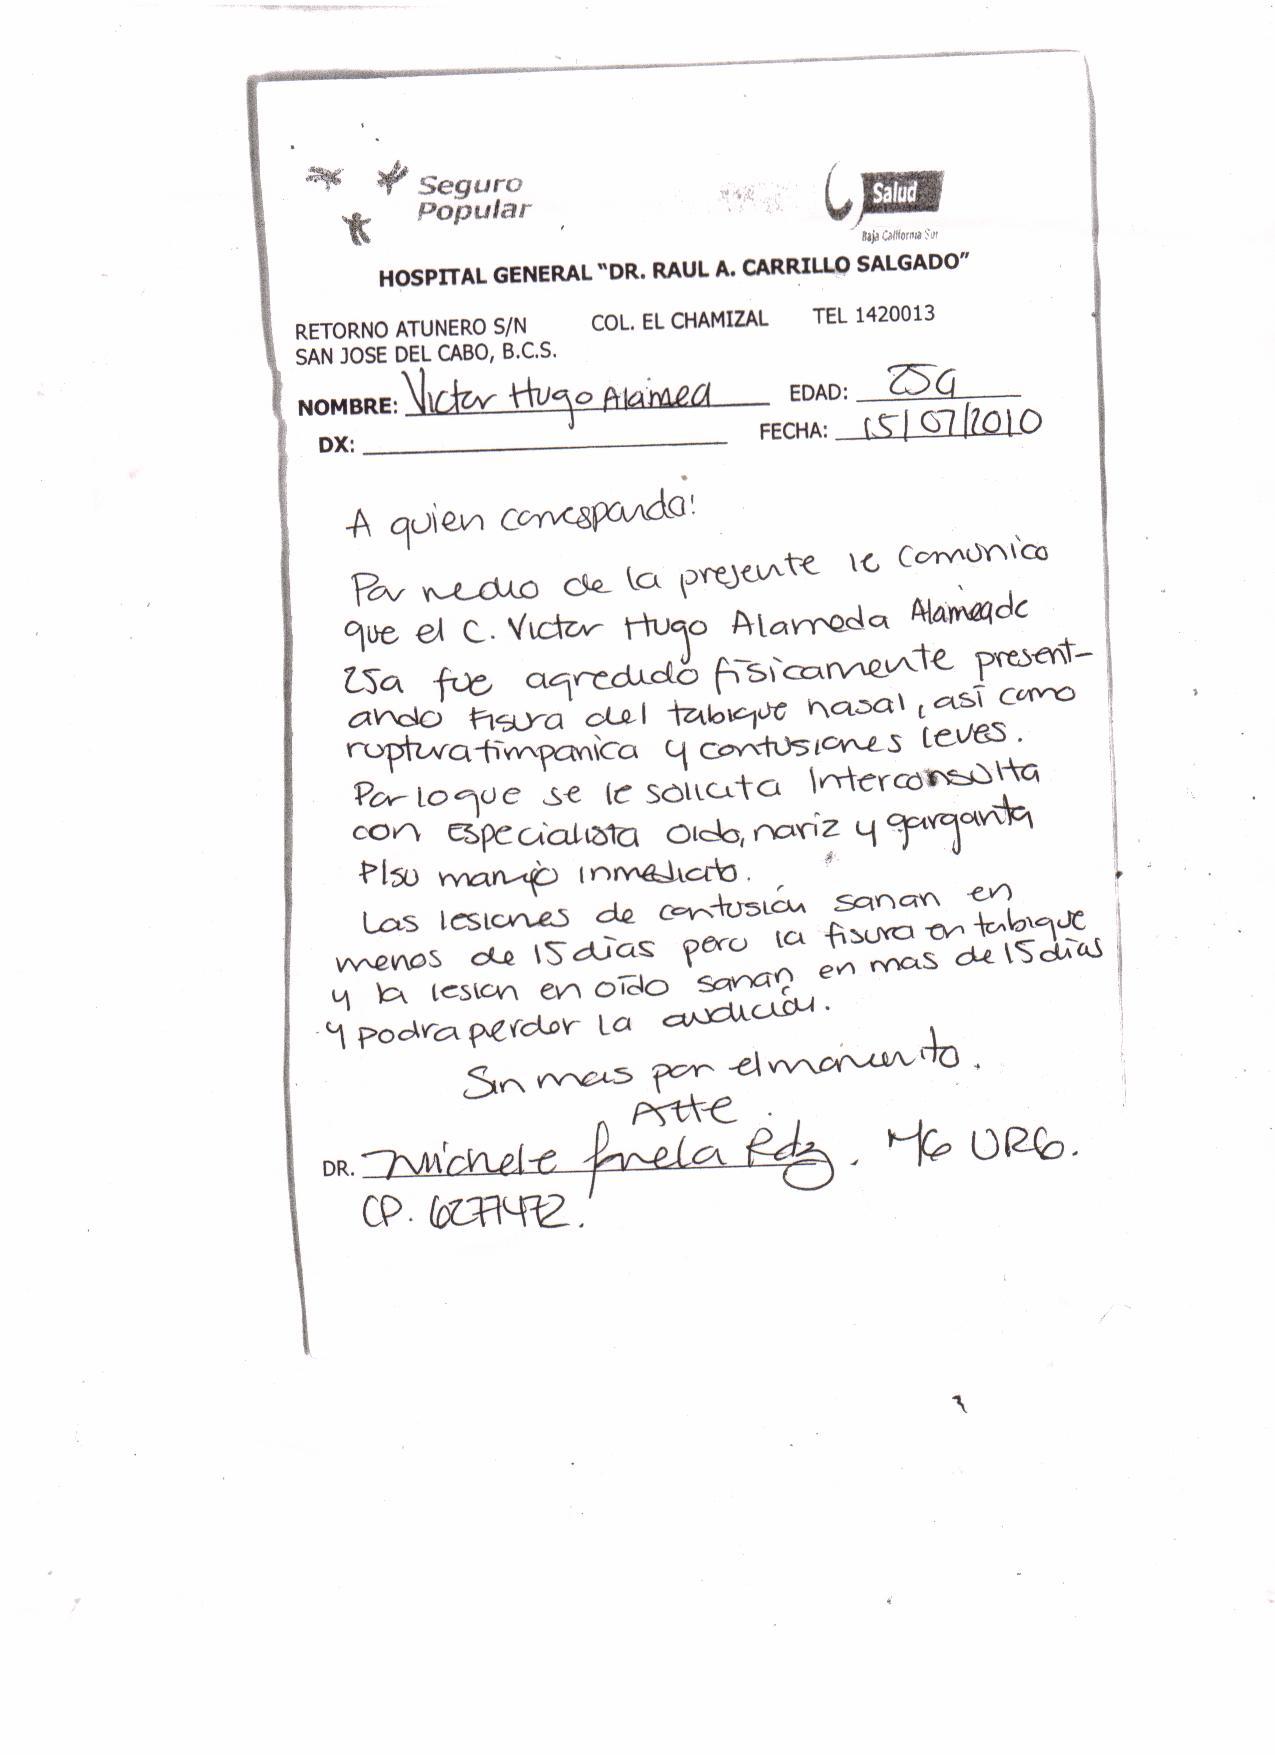 Seguro
Popular
Salud
Baja California Sur
HOSPITAL GENERAL "DR. RAUL A. CARRILLO SALGADO"
RETORNO ATUNERO S/N COL. EL CHAMIZAL TEL 1420013
SAN JOSE DEL CABO, B.C.S.
NOMBRE: Victor Hugo Alamed EDAD: 25a
DX: FECHA: 15/07/2010
A quien corresponda:
Por medio de la presente le comunico
que el C. Victor Hugo Alameda
25a fue agredido físicamente present-
ando fisura del tabique nasal, así como
ruptura timpanica y contusiones leves.
Por lo que se le solicita Interconsulta
con Especialista oido, nariz y garganta
P/su manejo inmediato.
Las lesiones de contusión sanan en
menos de 15 días pero la fisura en tabique
y la lesion en oído sanan en mas de 15 días
y podra perder la audición.
Sin mas por el momento.
Atte
DR. Michele Rdz. MG URG.
CP. 6277472.